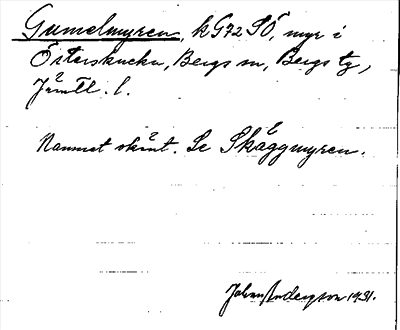 Gumelmyren, k G72 SÖ, myr i
Österskucku, Bergs sn, Bergs tg,
Jämtl. l.
Namnet okänt. Se Skäggmyren.
Johan Anderson 1931.